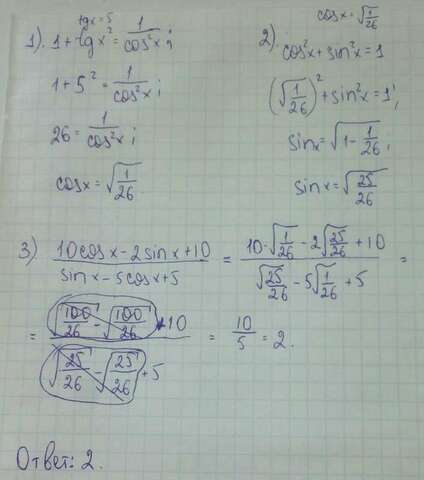 tgx = 5
1). 1 + tgx² = 1/cos²x;
1 + 5² = 1/cos²x;
26 = 1/cos²x;
cosx = √(1/26)
cosx = √(1/26)
2)
cos²x + sin²x = 1
(√(1/26))² + sin²x = 1;
sinx = √(1 - 1/26);
sinx = √(25/26)
3) (10cosx - 2sinx + 10)/(sinx - 5cosx + 5) = (10·√(1/26) - 2√(25/26) + 10)/(√(25/26) - 5√(1/26) + 5) =
= (√(100/26) - √(100/26) + 10)/(√(25/26) - √(25/26) + 5) = 10/5 = 2.
Ответ: 2.